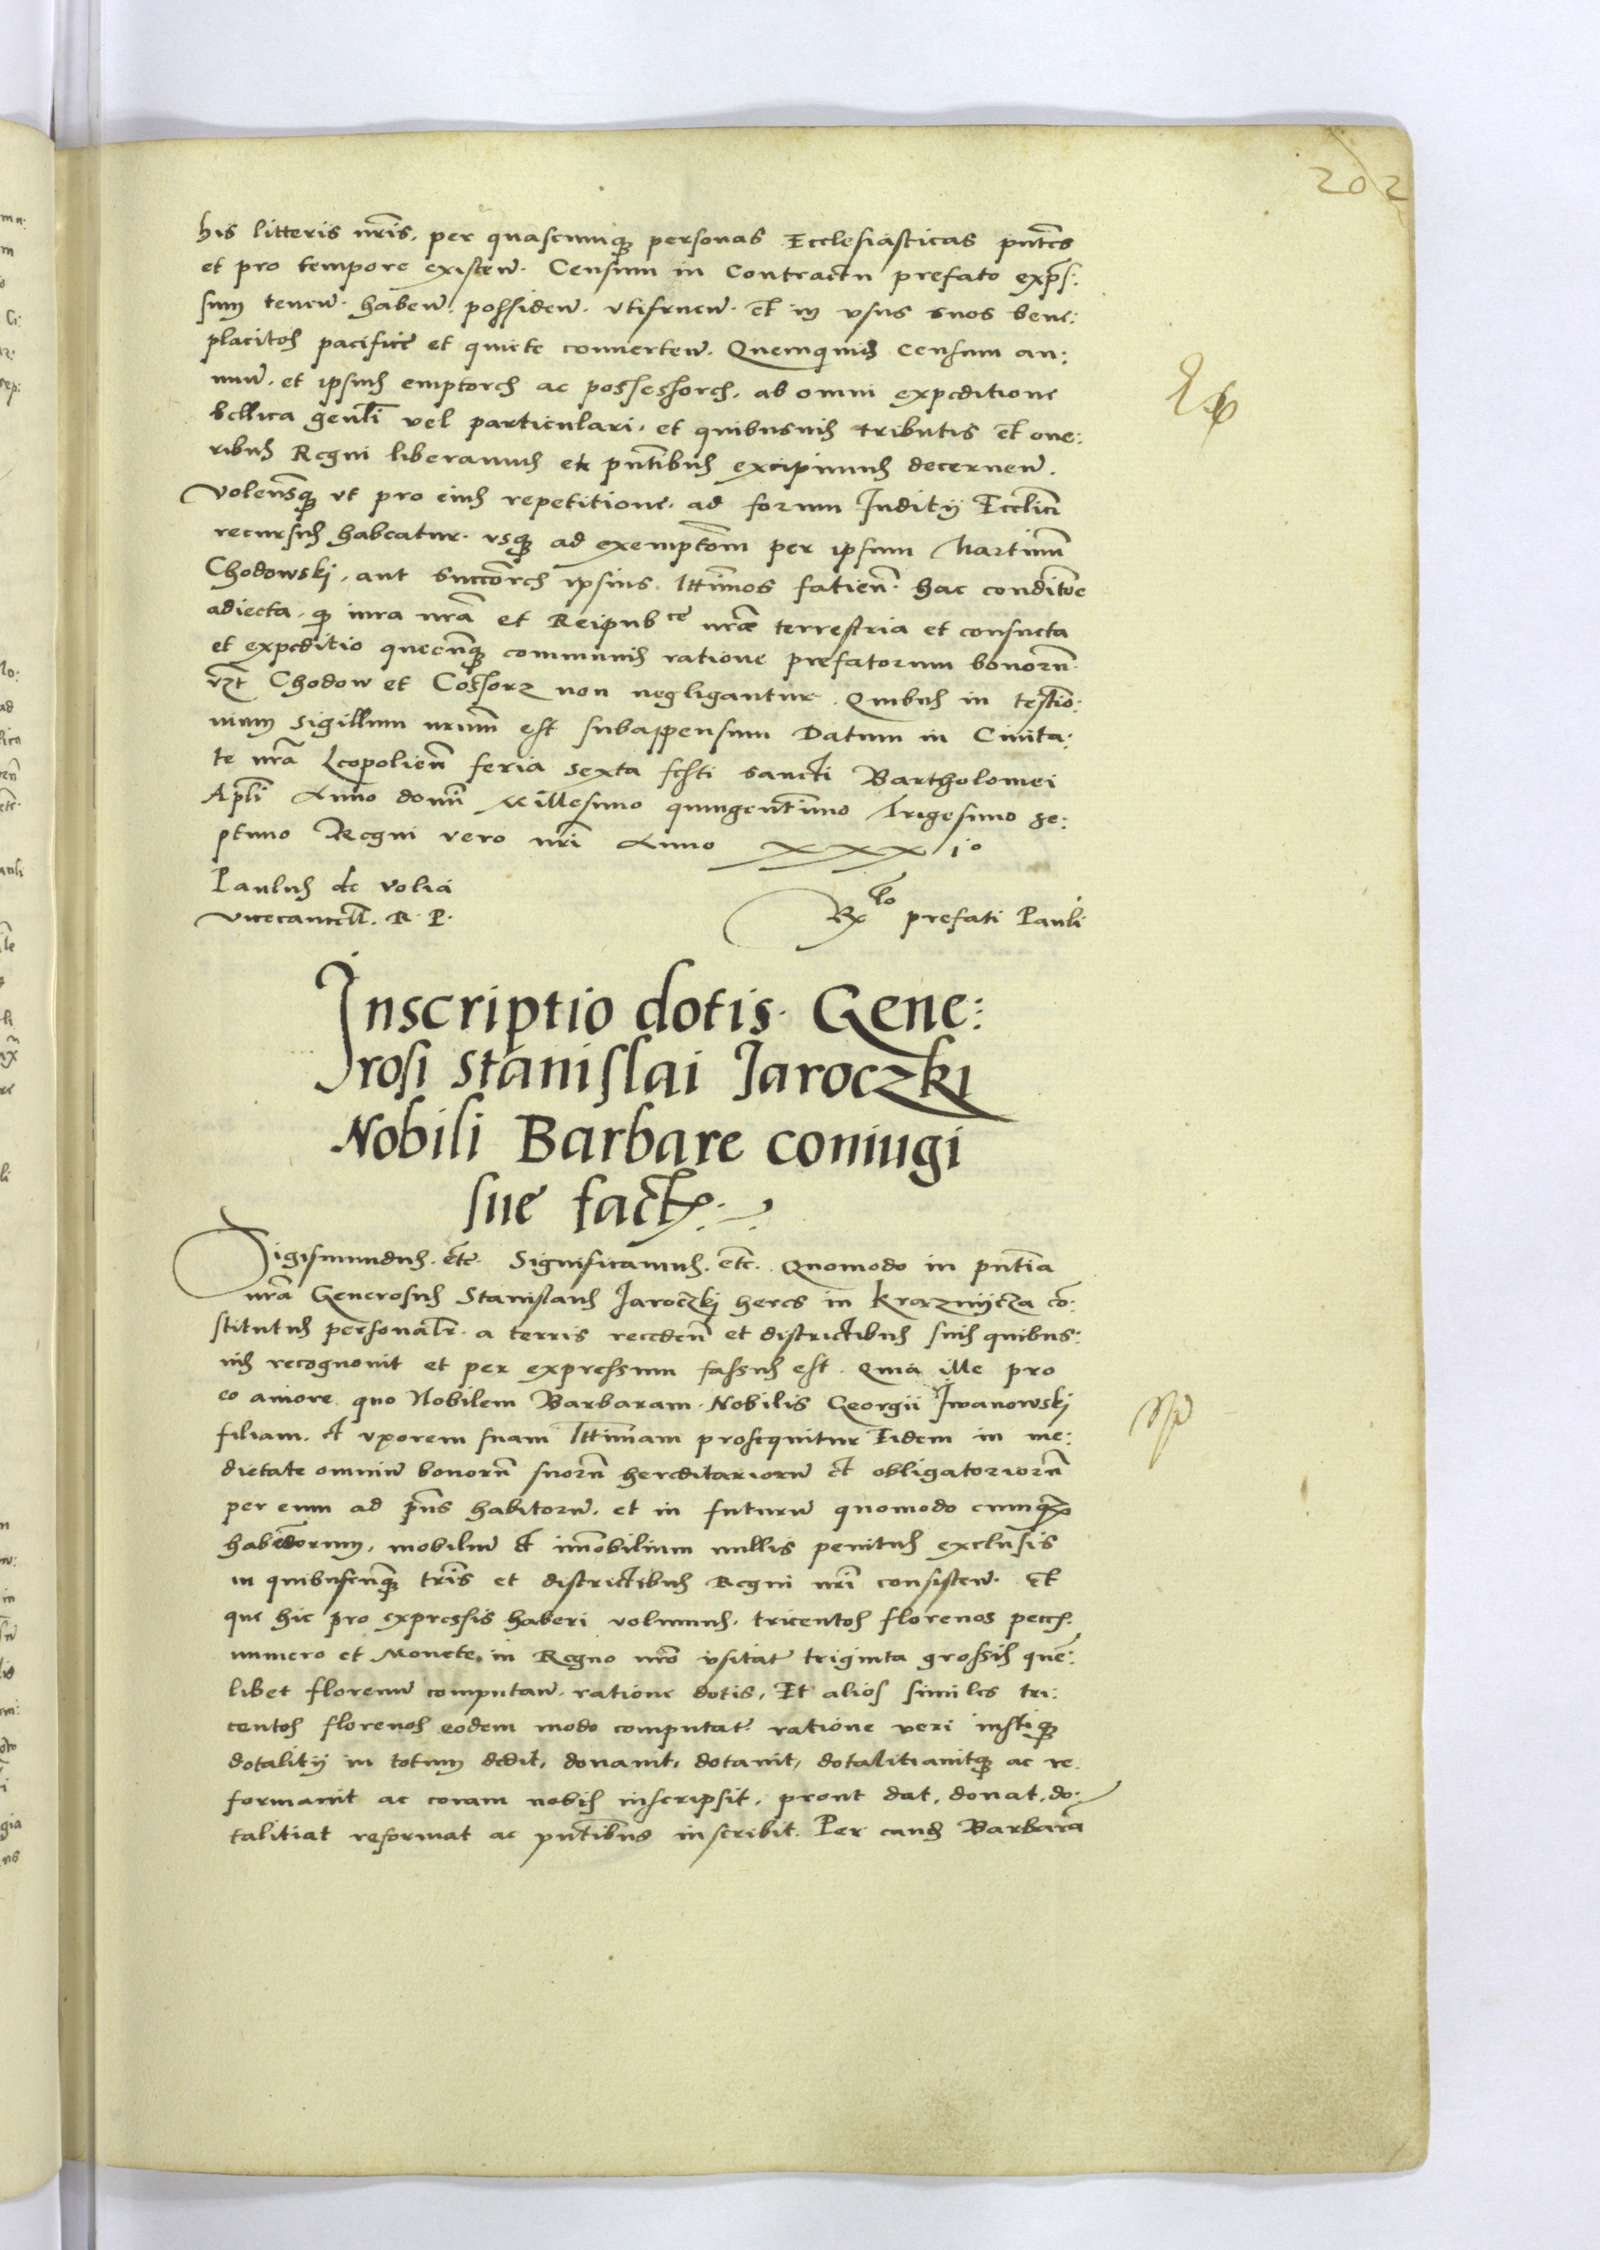 202
his litteris nr̃is, per quascumq personas Ecclesiasticas pñtes
et pro tempore existeñ. Censum in Contractu prefato exp̃s:
sum teneñ. habeñ. possideñ. vtifrueñ. et in vsus suos bene:
placitos pacifice et quiete conuerteñ. Quemquidẽ censum an:
nuũ. et ipsius emptores ac possessores. ab omni expeditione
bellica gen̄li vel particulari. et quibusuis tributis et one:
ribus Regni liberamus et pñtibus excipimus decerneñ.
Volensq vt pro eius repetitione. ad forum Juditij Eccl̃ici
recursus habeatur. vsq ad exemptõem per ipsum Martinũ
Chodowskj, aut succ̃ores ipsius l̃ttimos fatieñ. hac conditõe
adiecta. q iura nr̃a et Reipub ce nr̃ae terrestria et consueta
et expeditio quecũq communis ratione prefatorum bonorũ.
vz̃t Chodow et Cossorz non negligantur. Quibus in testio:
nium sigillum nr̃um est subappensum Datum in Ciuita:
te nr̃a Leopolieñ feria sexta festi sancti Bartholomei
Ap̃li Anno domi Millesimo quingentimo Trigesimo se:
ptimo Regni vero nr̃i Anno xxxi°
Paulus de Volia
Vicecancell. R. P.
Rx lo prefati Pauli
Inscriptio dotis. Gene:
rosi Stanislai Jaroczki
Nobili Barbare coniugi
sue facta
Sigismundus. etc. Significamus. etc. Quomodo in pñtia
nr̃a Generosus Stanislaus Jaroczkj heres in Krazniicza cõ:
stitutus personalr̃. a terris recedeñ et districtibus suis quibus:
uis recognouit et per expressum fassus est. Quia ille pro
eo amore quo Nobilem Barbaram. Nobilis Georgii Jwanowskj
filiam. et vxorem suam l̃ttimam prosequitur Eidem in me:
dietate omniũ bonorũ suorũ hereditariorũ et obligatoriorũ
per eum ad p̃ns habitorũ. et in futurũ quomodo cumq
habẽdorum, mobiliũ et im̃obilium nullis penitus exclusis
in quibuscũq tr̃is et districtibus Regni nr̃i consisteñ. Et
que hic pro expressis haberi volumus. tricentos florenos pecc̃.
numero et Monete. in Regno nr̃o vsitat̃ triginta grossis quẽ:
libet florenũ computañ. ratione dotis, Et alios similes tri:
centos florenos eodem modo computat̃ ratione veri iustiq
dotalitij in totum dedit, donauit, dotauit, dotalitiauitq ac re
formauit ac coram nobis inscripsit, prout dat, donat, do:
talitiat reformat ac pñtibus inscribit. Per eandẽ Barbarã